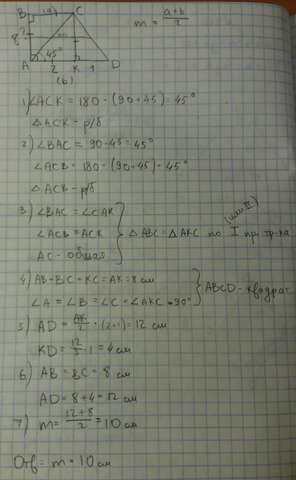 B (a) C m = a+b/2
8
45°
A 2 K 1 D
(b)
1) ∠ACK = 180 - (90+45) = 45°
△ACK - р/б
2) ∠BAC = 90-45 = 45°
∠ACB = 180 - (90+45) = 45°
△ACB - р/б
3) ∠BAC = ∠CAK
∠ACB = ACK } △ABC = △AKC по I пр. тр-ка
(или II)
AC - общая
4) AB = BC = KC = AK = 8 см
∠A = ∠B = ∠C = ∠AKC = 90° } ABCD - квадрат
5) AD = AK/2 · (2+1) = 12 см
KD = 12/3 · 1 = 4 см
6) AB = BC = 8 см
AD = 8+4 = 12 см
7) m = 12+8/2 = 10 см
Отв = m = 10 см